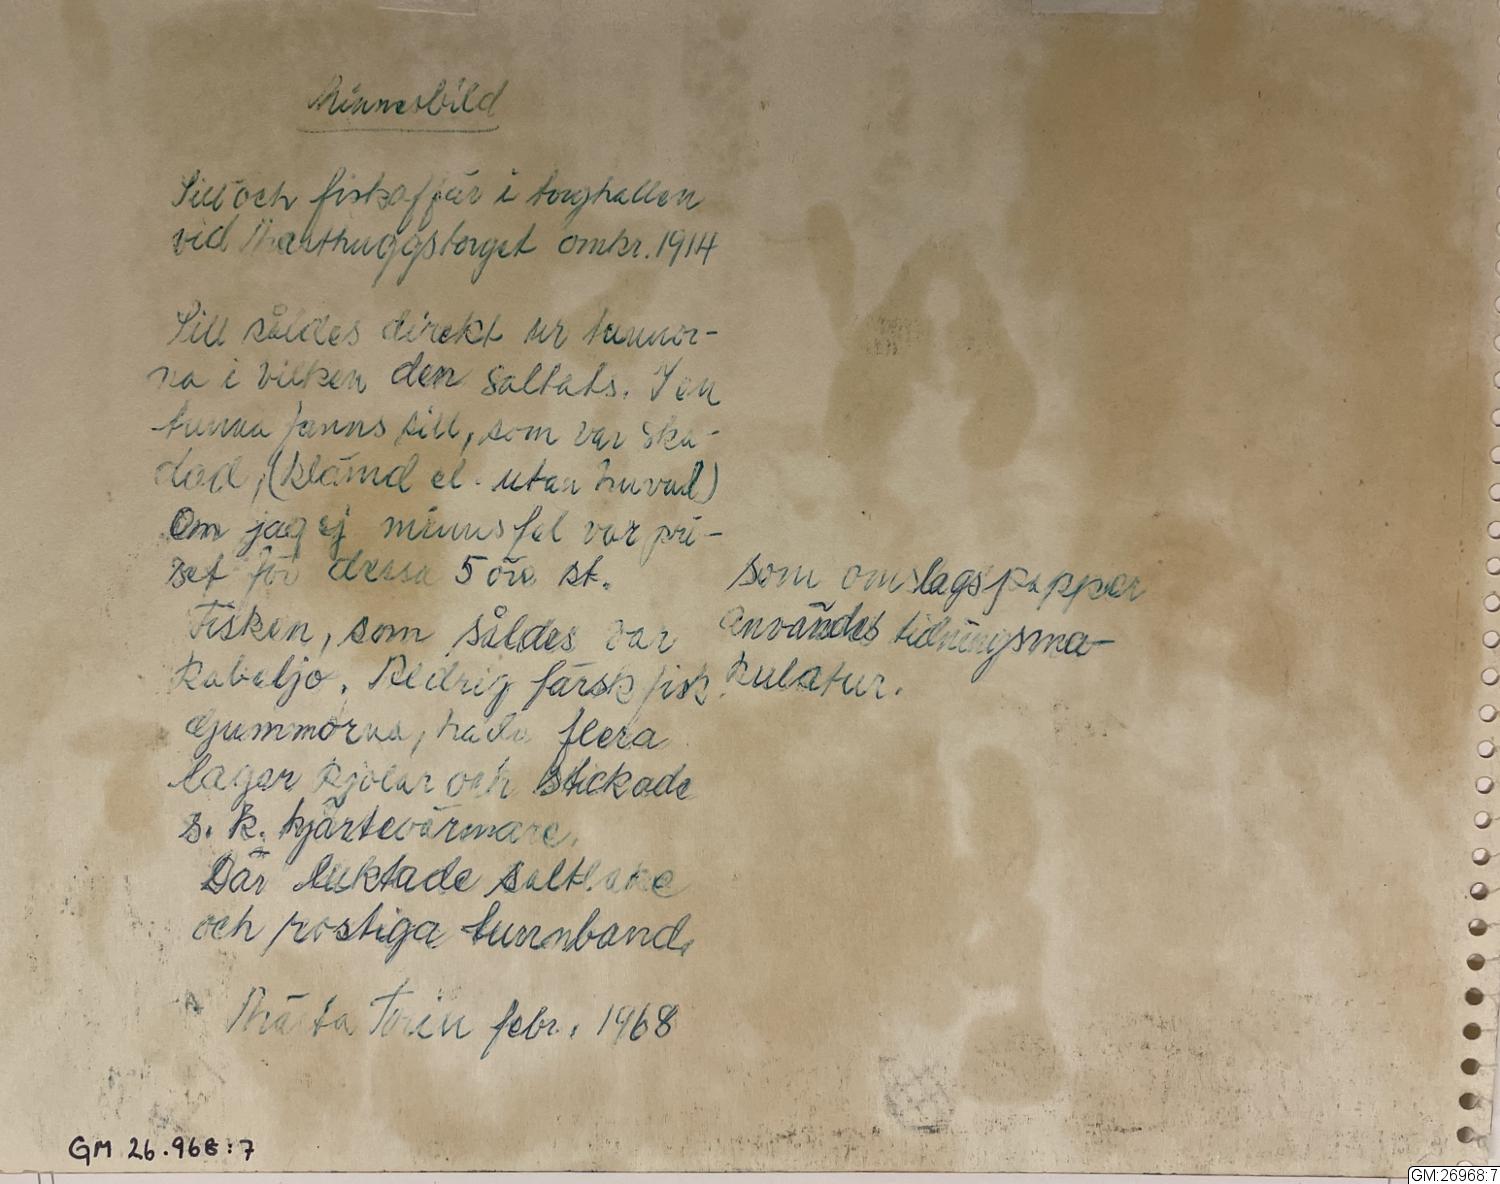 Minnesbild
Sill och fiskaffär i torghallen
vid Masthuggstorget omkr. 1914
Sill såldes direkt ur tunnor-
na i vilken den saltats. I en
tunna fanns sill, som var ska-
dad, (klämd el. utan huvud)
Om jag ej minns fel var pri-
set för dessa 5 öre st.
Fisken, som såldes var
Kabeljo. Aldrig färsk fisk.
Gummorna, hade flera
lager kjolar och stickade
s. k. hjärtevärmare.
Där luktade saltlake
och rostiga tunnband.
som omslagspapper
användes tidningsma-
kulatur.
Märta Torin febr. 1968
GM 26.968:7
GM:26968:7